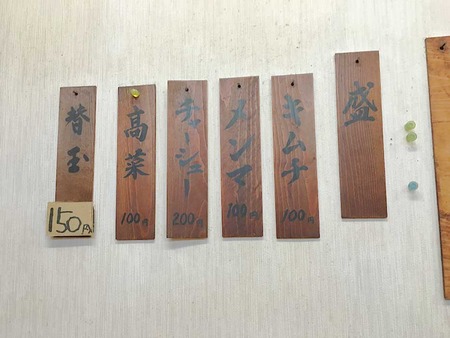 盛
キムチ
100円
メンマ
100円
チャーシュー
200円
高菜
100円
替玉
150円